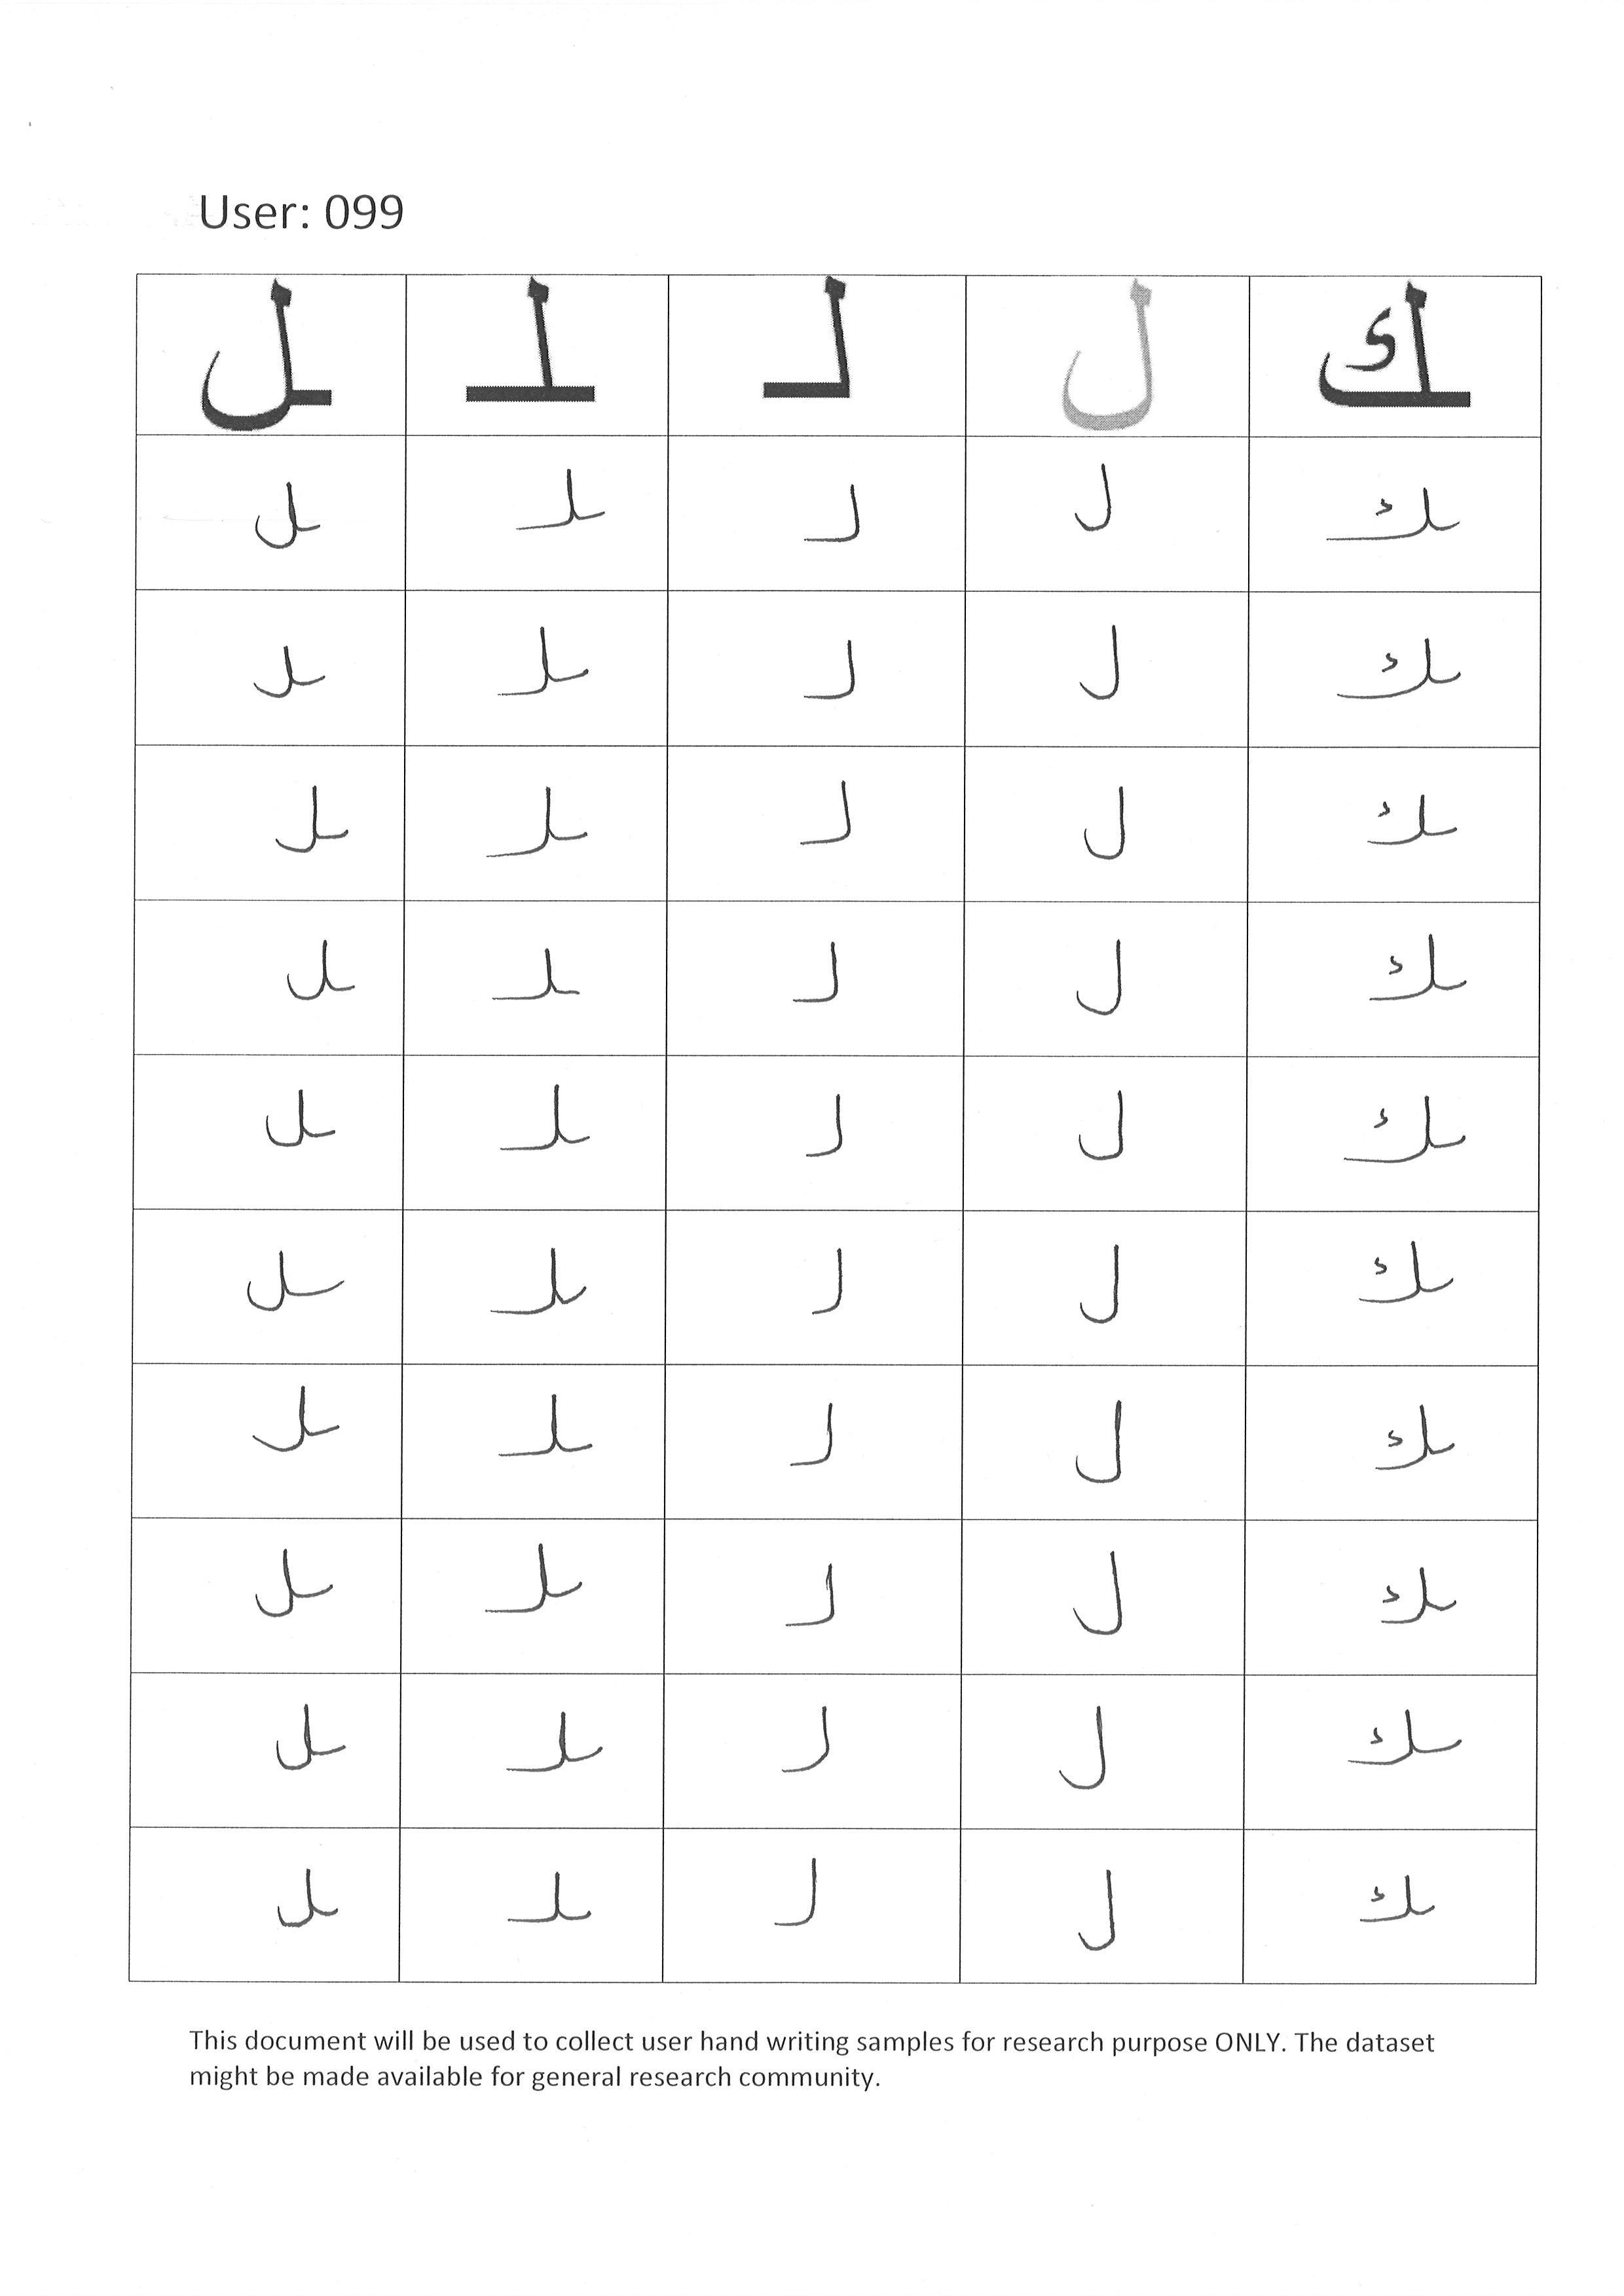 User: 099
ـك ل لـ ـلـ ـل
ـك ل لـ ـلـ ـل
ـك ل لـ ـلـ ـل
ـك ل لـ ـلـ ـل
ـك ل لـ ـلـ ـل
ـك ل لـ ـلـ ـل
ـك ل لـ ـلـ ـل
ـك ل لـ ـلـ ـل
ـك ل لـ ـلـ ـل
ـك ل لـ ـلـ ـل
ـك ل لـ ـلـ ـل
This document will be used to collect user hand writing samples for research purpose ONLY. The dataset
might be made available for general research community.